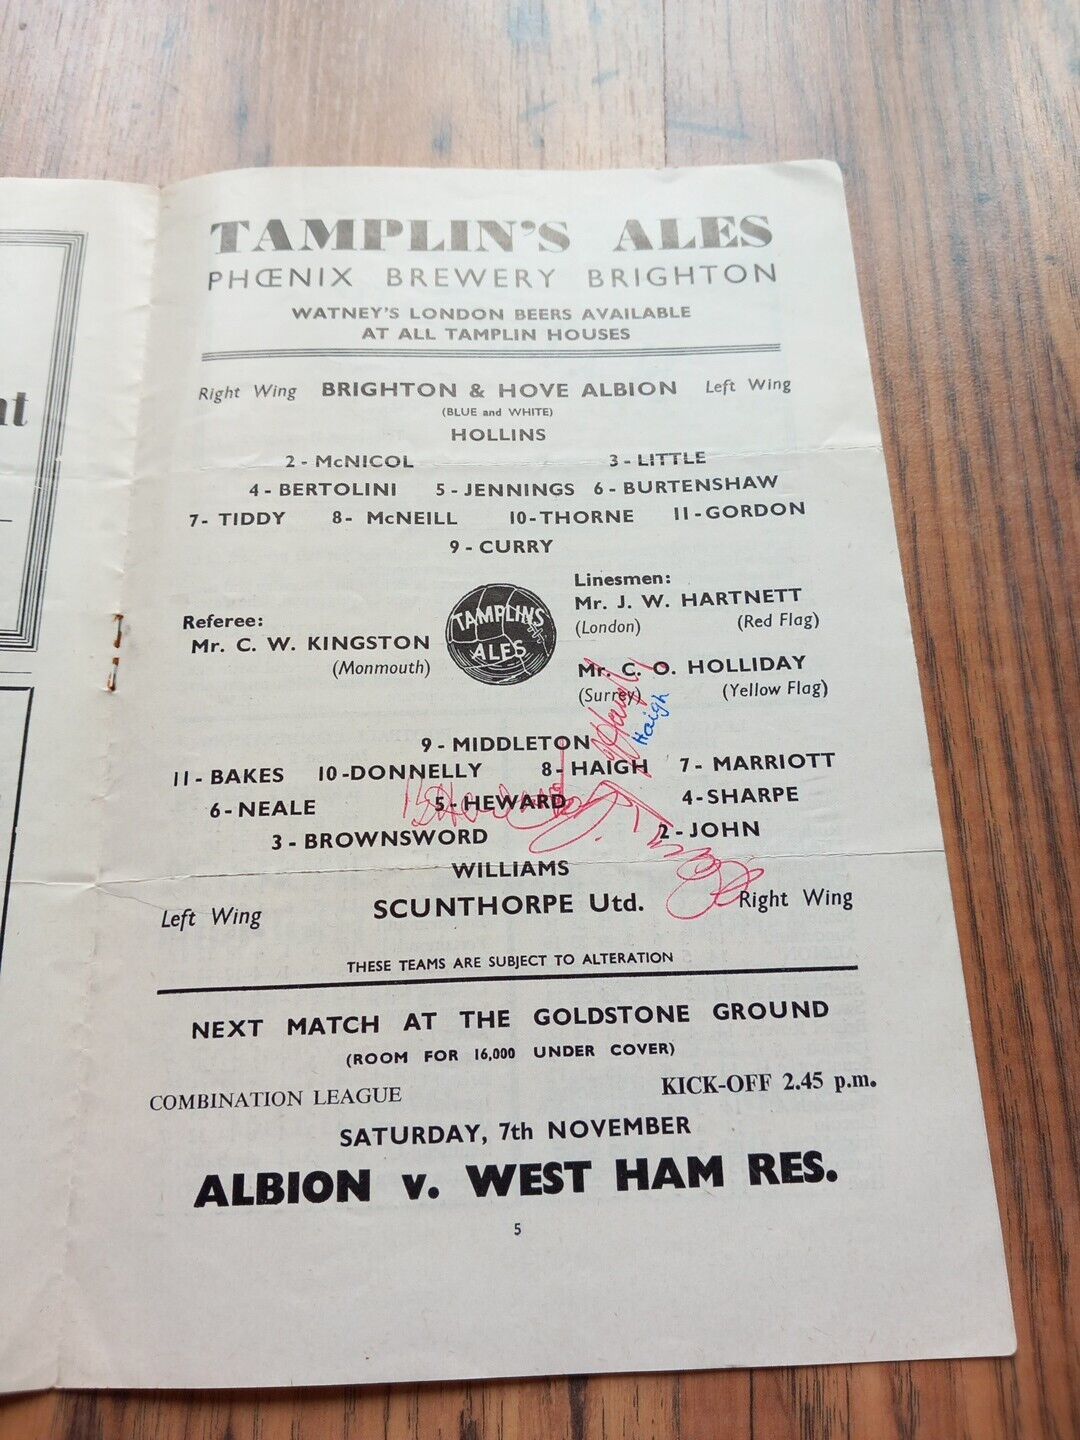 nt
TAMPLIN'S ALES
PHŒNIX BREWERY BRIGHTON
WATNEY'S LONDON BEERS AVAILABLE
AT ALL TAMPLIN HOUSES
Right Wing BRIGHTON & HOVE ALBION Left Wing
(BLUE and WHITE)
HOLLINS
2 - McNICOL 3 - LITTLE
4 - BERTOLINI 5 - JENNINGS 6 - BURTENSHAW
7 - TIDDY 8 - McNEILL 10 - THORNE 11 - GORDON
9 - CURRY
Referee:
Mr. C. W. KINGSTON
(Monmouth)
TAMPLINS
ALES
Linesmen:
Mr. J. W. HARTNETT
(London) (Red Flag)
Mr. C. O. HOLLIDAY
(Surrey) (Yellow Flag)
Haigh
9 - MIDDLETON
11 - BAKES 10 - DONNELLY 8 - HAIGH 7 - MARRIOTT
6 - NEALE 5 - HEWARD 4 - SHARPE
3 - BROWNSWORD 2 - JOHN
WILLIAMS
Left Wing SCUNTHORPE Utd. Right Wing
THESE TEAMS ARE SUBJECT TO ALTERATION
NEXT MATCH AT THE GOLDSTONE GROUND
(ROOM FOR 16,000 UNDER COVER)
COMBINATION LEAGUE KICK-OFF 2.45 p.m.
SATURDAY, 7th NOVEMBER
ALBION v. WEST HAM RES.
5